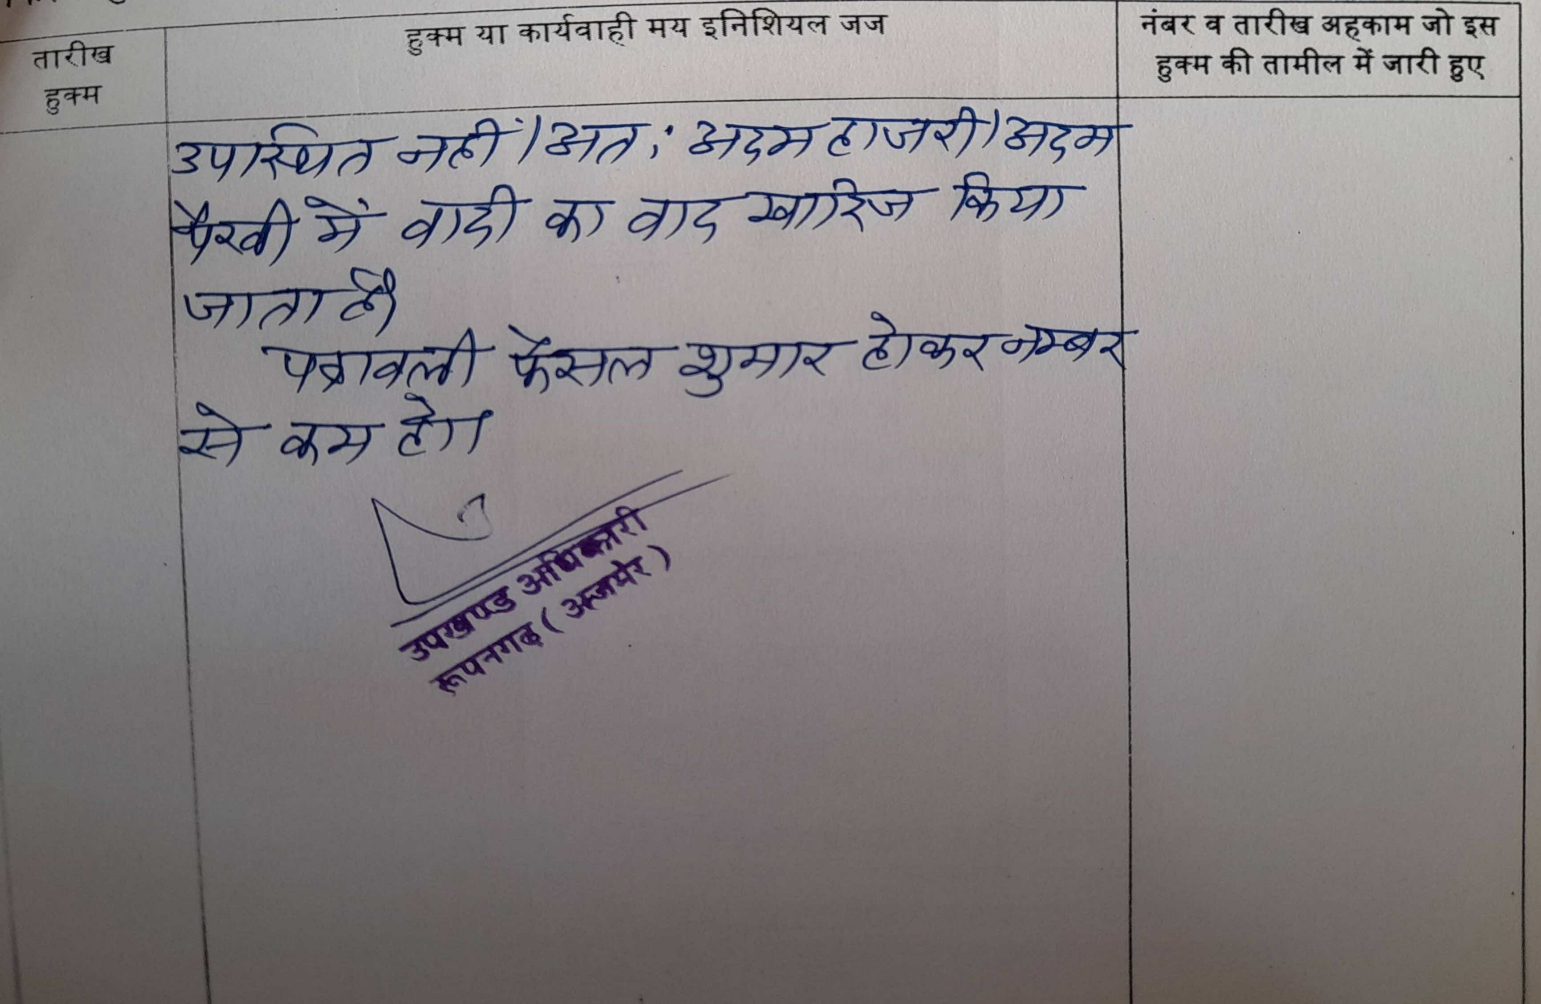 तारीख
हुक्म
हुक्म या कार्यवाही मय इनिशियल जज
नंबर व तारीख अहकाम जो इस
हुक्म की तामील में जारी हुए
उपस्थित नहीं। अतः अदम हाजरी। अदम
पैरवी में वादी का वाद खारिज किया
जाता है।
पत्रावली फैसल शुमार होकर नम्बर
से कम हो।
उपखण्ड अधिकारी
रूपनगढ़ (अजमेर)